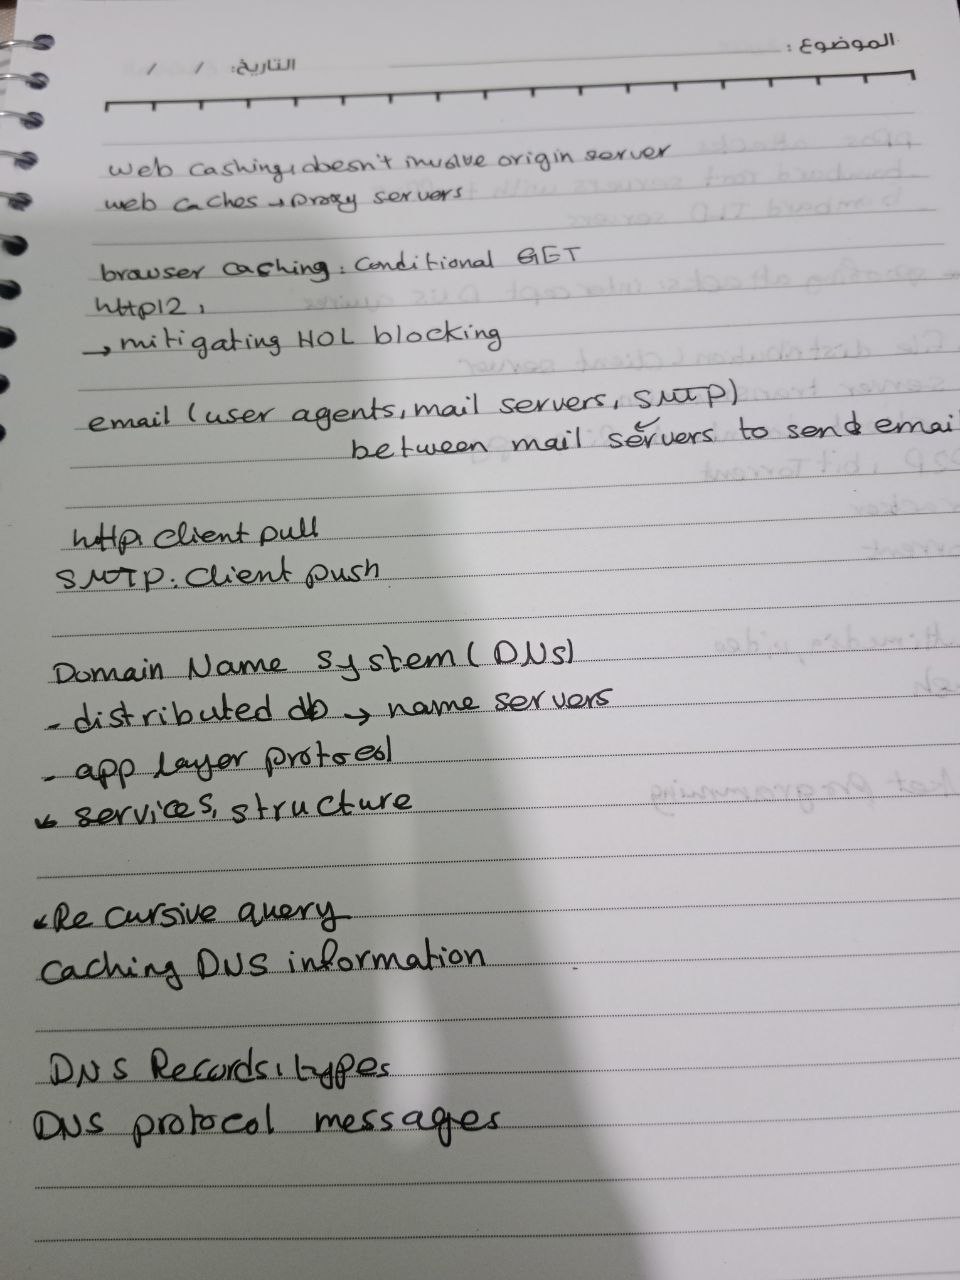 الموضوع :
التاريخ: / /
web cashing: doesn't involve origin server
web caches → proxy servers
browser caching: conditional GET
http/2:
→ mitigating HOL blocking
email (user agents, mail servers, SMTP)
between mail servers to send email
http: client pull
SMTP: client push
Domain Name System (DNS)
- distributed db → name servers
- app layer protocol
services, structure
Recursive query
caching DNS information
DNS Records: types
DNS protocol messages